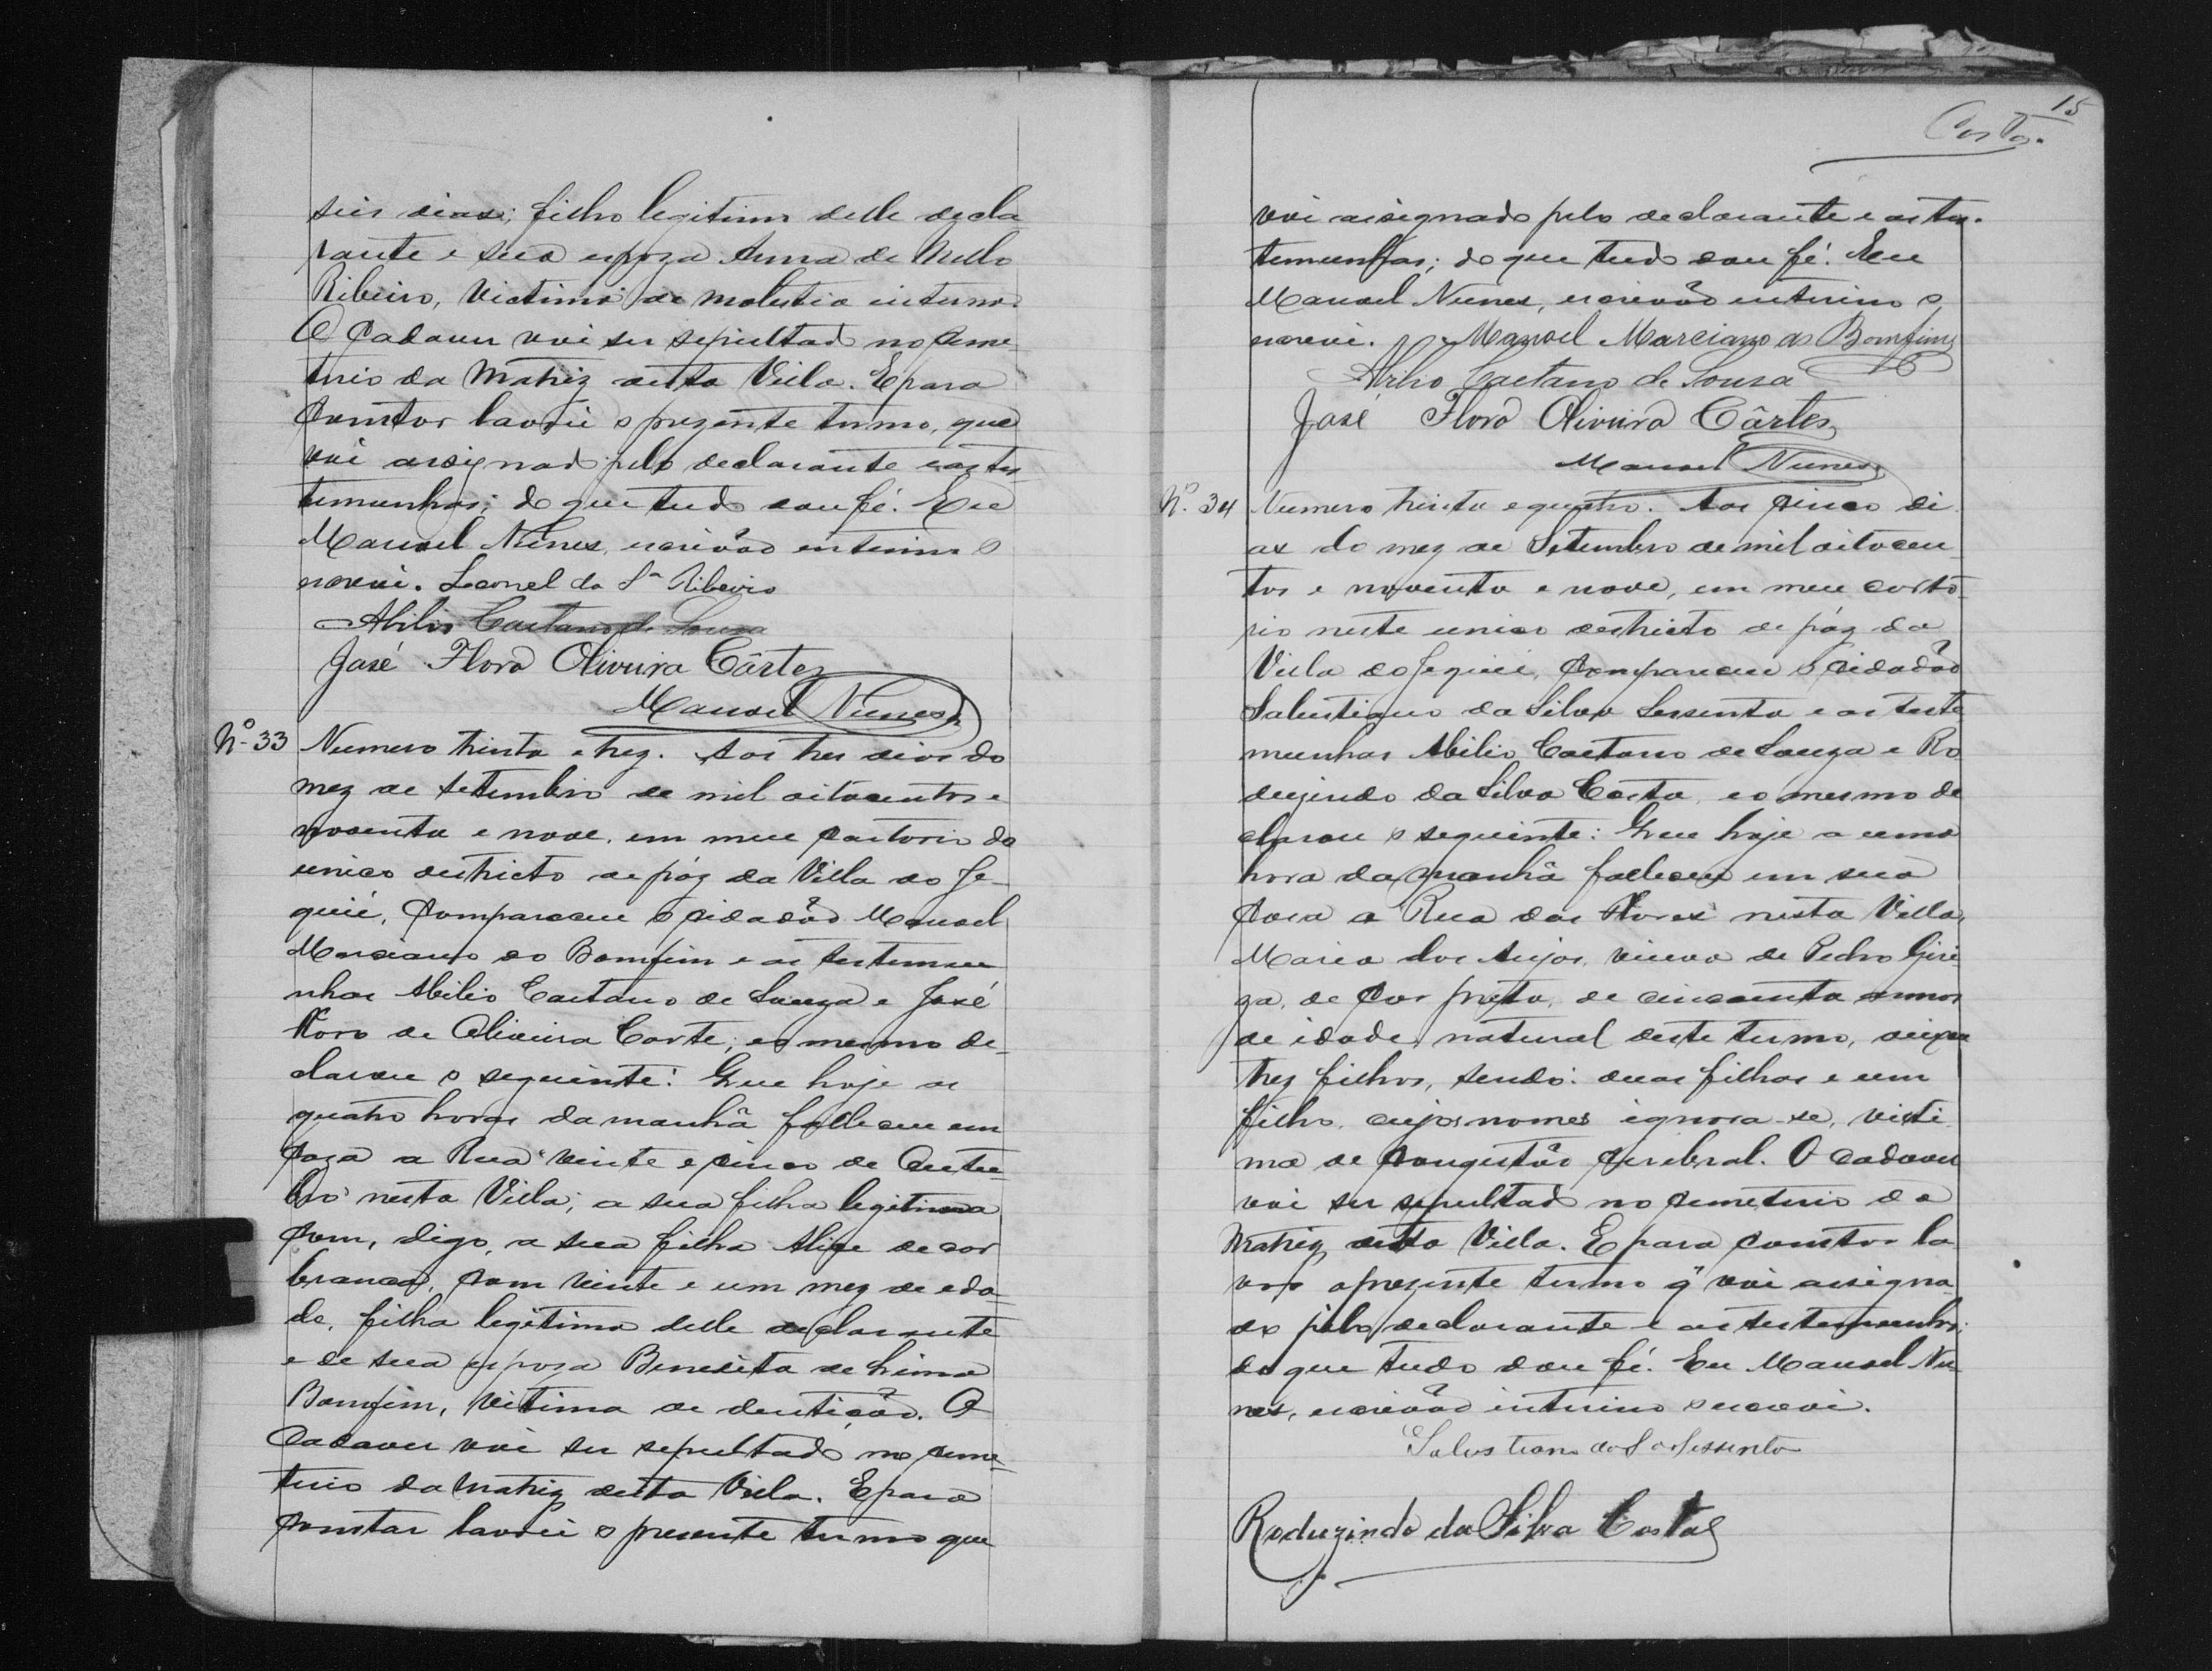 seis dias; filho legitimo delle decla
rante e sua espoza Anna de Mello
Ribeiro, victima de molestia interna.
O Cadaver vai ser sepultado no Ceme-
terio da Matriz desta Villa. E para
Constar lavrei o prezente termo, que
vai assignado pelo declarante e as tes
temunhas; do que tudo dou fé. Eu
Manoel Nunes, escrivão enterino o
escrevi. Leonel da Sª Ribeiro
Abilio Caetano de Souza
José Floro Oliveira Côrtes
Manoel Nunes
Nº 33 Numero trinta e trez. Aos tres dias do
mez de setembro de mil oitocentos e
noventa e nove, em meu Cartorio do
unico destricto de páz da Villa do Je-
quié, Compareceu o cidadão Manoel
Marciano do Bomfim e as testemu
nhas Abilio Caetano de Souza e José
Floro de Oliveira Corte; e o mesmo de-
clarou o seguinte: Que hoje as
quatro horas da manhã falleceu em
Caza a Rua "Vinte e Cinco de Outu-
bro" nesta Villa; a sua filha legitima
Com, digo, a sua filha Alice de cor
branca, Com vinte e um mez de eda-
de, filha legitima delle declarante
e de sua espoza Benedita de Lima
Bomfim, vitima de dentição. O
Cadaver vai ser sepultado no Ceme-
terio da Matriz desta Villa. E para
Constar lavrei o presente termo que
15
Costa.
vai assignado pelo declarante e as tes-
temunhas; do que tudo dou fé. Eu
Manoel Nunes, escrivão enterino o
escrevi. Manoel Marciano do Bomfim
Abilio Caetano de Sousa
José Floro Oliveira Côrtes
Manoel Nunes
Nº 34 Numero trinta e quatro. Aos Cinco di
as do mez de Setembro de mil oitocen
tos e noventa e nove, em meu carto-
rio neste unico destricto de páz da
Villa do Jequié, Compareceu o Cidadão
Salustiano da Silva Sessenta e as teste
munhas Abilio Caetano de Souza e Ro
duzindo da Silva Costa, e o mesmo de
clarou o seguinte: Que hoje a uma
hora da manhã falleceu em sua
Casa a Rua das Flores nesta Villa,
Maria dos Anjos, viuva de Pedro
de Cor preta, de cincoenta annos
de idade, natural deste termo, deixa
trez filhos, sendo: duas filhas e um
filho, cujos nomes ignora-se, victi
ma de Congestão Cerebral. O Cadaver
vai ser sepultado no Cemeterio da
Matriz desta Villa. E para Constar la
vro o prezente termo q̃ vai assigna
do pelo declarante e as testemunhas;
do que tudo dou fé. Eu Manoel Nu
nes, escrivão interino o escrevi.
Salustiano da Sª Sessenta
Roduzindo da Silva Costa